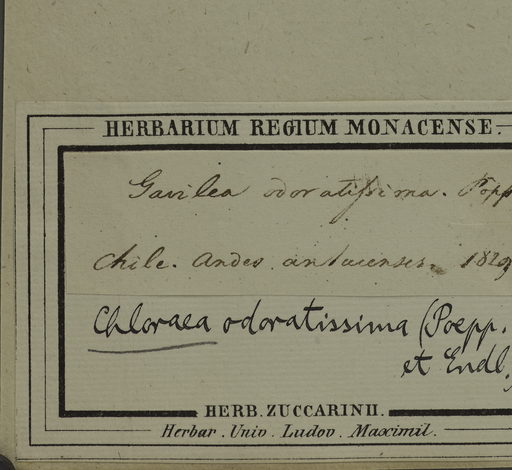 HERBARIUM REGIUM MONACENSE.
Gavilea odoratissima. Popp
Chile. Andes. antucenses. 1829
Chloraea odoratissima (Poepp.
et Endl.)
HERB. ZUCCARINII.
Herbar. Univ. Ludov. Maximil.